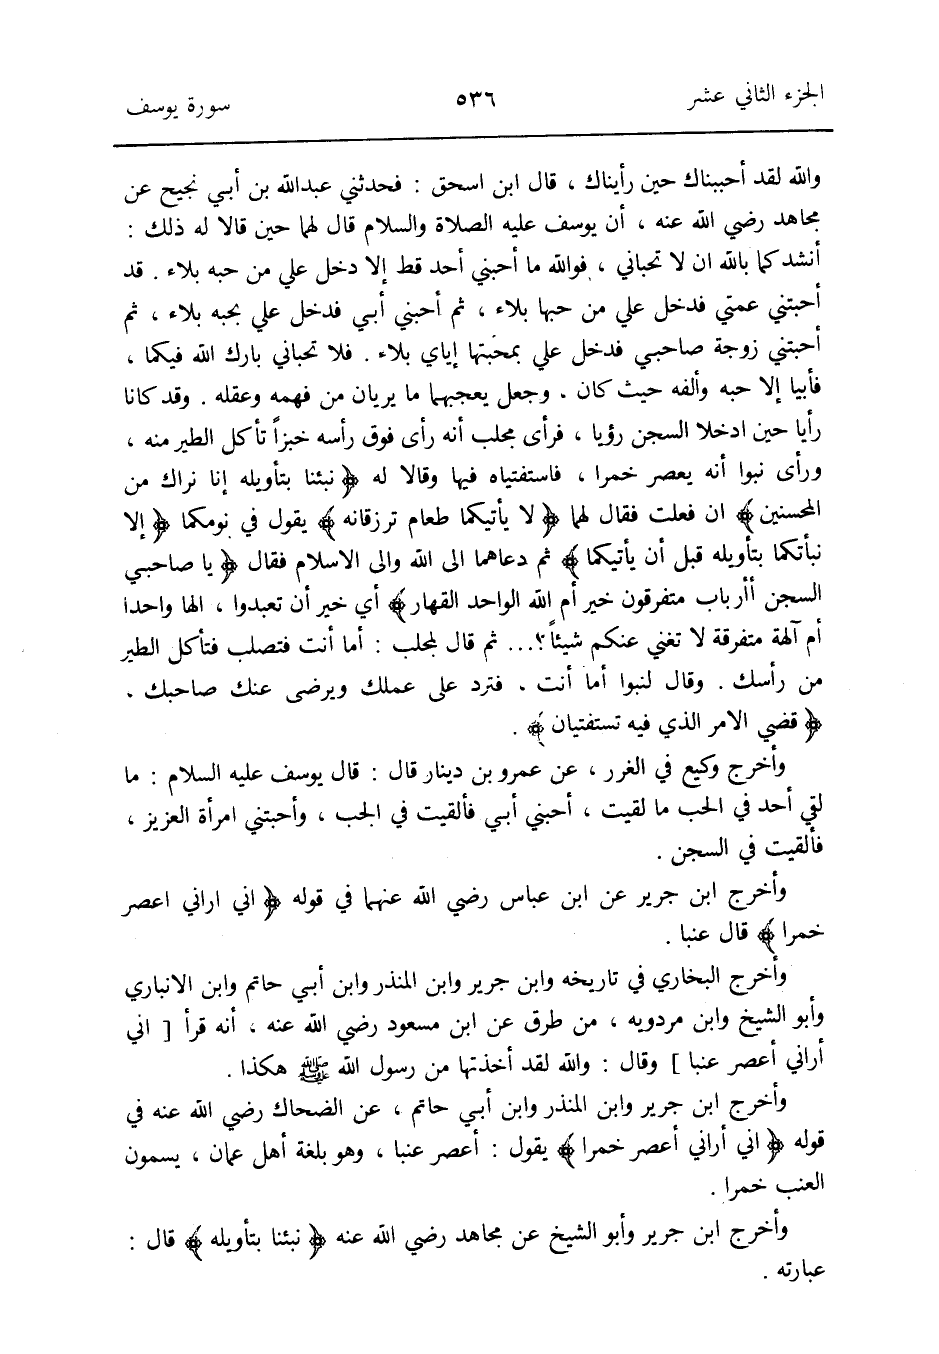 الجزء الثاني عشر ٥٣٦ سورة يوسف
والله لقد أحببناك حين رأيناك ، قال ابن اسحق : فحدثني عبدالله بن أبي نجيح عن
مجاهد رضي الله عنه ، أن يوسف عليه الصلاة والسلام قال لهما حين قالا له ذلك :
أنشدكما بالله ان لا تحباني ، فوالله ما أحبني أحد قط إلا دخل علي من حبه بلاء . قد
أحبتني عمتي فدخل علي من حبها بلاء ، ثم أحبني أبي فدخل علي بحبه بلاء ، ثم
أحبتني زوجة صاحبي فدخل علي بمحبتها إياي بلاء . فلا تحباني بارك الله فيكما ،
فأبيا إلا حبه وألفه حيث كان . وجعل يعجبهما ما يريان من فهمه وعقله . وقد كانا
رأيا حين ادخلا السجن رؤيا ، فرأى مجلب أنه رأى فوق رأسه خبزاً تأكل الطير منه ،
ورأى نبوا أنه يعصر خمرا ، فاستفتياه فيها وقالا له ﴿ نبئنا بتأويله إنا نراك من
المحسنين ﴾ ان فعلت فقال لهما ﴿ لا يأتيكما طعام ترزقانه ﴾ يقول في نومكما ﴿ إلا
نبأتكما بتأويله قبل أن يأتيكما ﴾ ثم دعاهما الى الله والى الاسلام فقال ﴿ يا صاحبي
السجن أأرباب متفرقون خير أم الله الواحد القهار ﴾ أي خير أن تعبدوا ، الها واحدا
أم آلهة متفرقة لا تغني عنكم شيئاً ؟... ثم قال لمجلب : أما أنت فتصلب فتأكل الطير
من رأسك . وقال لنبوا أما أنت . فترد على عملك ويرضى عنك صاحبك .
﴿ قضي الامر الذي فيه تستفتيان ﴾ .
وأخرج وكيع في الغرر ، عن عمرو بن دينار قال : قال يوسف عليه السلام : ما
لقي أحد في الحب ما لقيت ، أحبني أبي فألقيت في الجب ، وأحبتني امرأة العزيز ،
فألقيت في السجن .
وأخرج ابن جرير عن ابن عباس رضي الله عنهما في قوله ﴿ اني اراني اعصر
خمرا ﴾ قال عنبا .
وأخرج البخاري في تاريخه وابن جرير وابن المنذر وابن أبي حاتم وابن الانباري
وأبو الشيخ وابن مردويه ، من طرق عن ابن مسعود رضي الله عنه ، أنه قرأ [ اني
أراني أعصر عنبا ] وقال : والله لقد أخذتها من رسول الله ﷺ هكذا .
وأخرج ابن جرير وابن المنذر وابن أبي حاتم ، عن الضحاك رضي الله عنه في
قوله ﴿ اني أراني أعصر خمرا ﴾ يقول : أعصر عنبا ، وهو بلغة أهل عمان ، يسمون
العنب خمرا .
وأخرج ابن جرير وأبو الشيخ عن مجاهد رضي الله عنه ﴿ نبئنا بتأويله ﴾ قال :
عبارته .